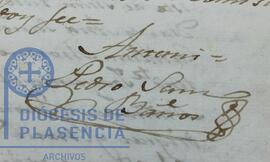 doy fee=
Antemi=
Pedro San
Baños
DIÓCESIS DE
PLASENCIA
ARCHIVOS